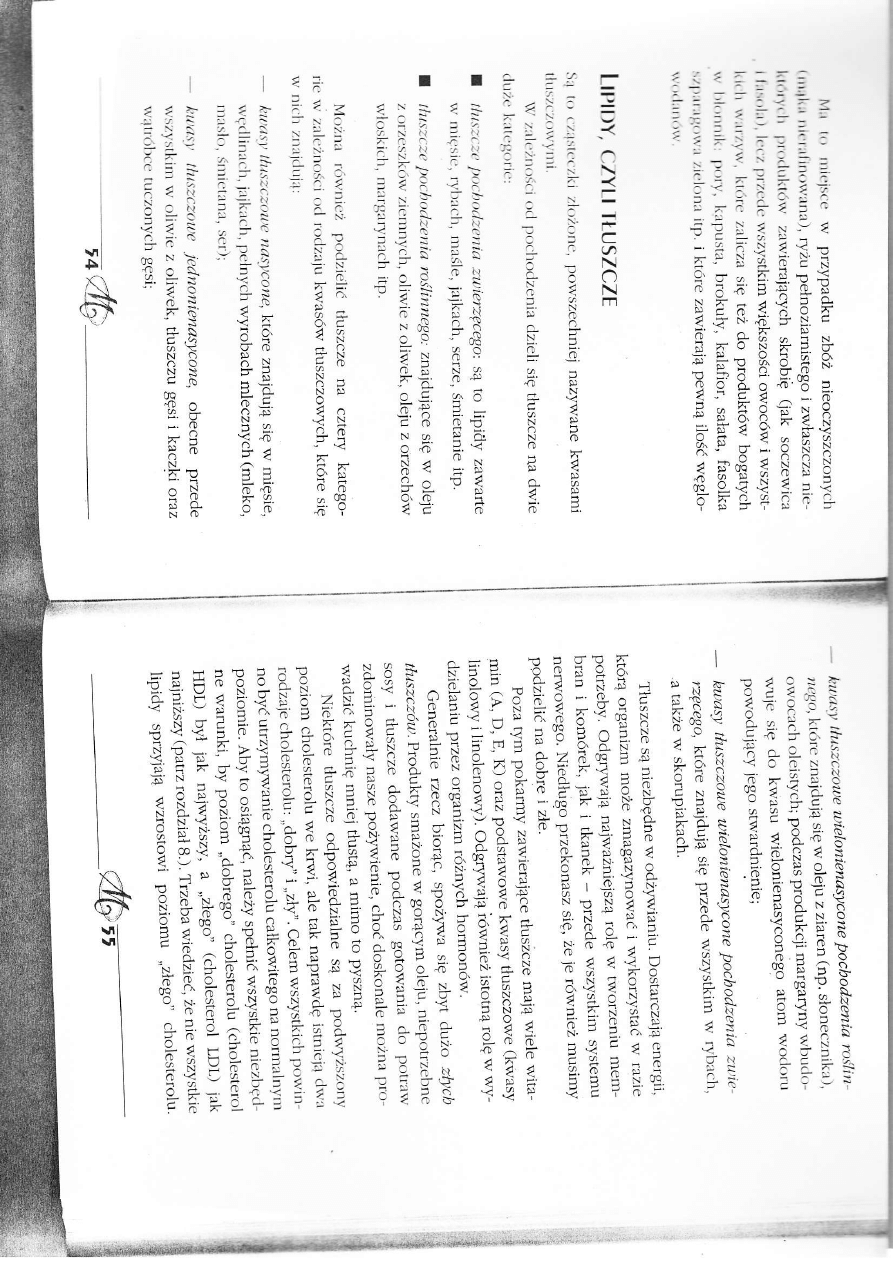 Ma to miejsce w przypadku zbóż nieoczyszczonych
(mąka nierafinowana), ryżu pełnoziarnistego i zwłaszcza nie-
których produktów zawierających skrobię (jak soczewica
i fasola), lecz przede wszystkim większości owoców i wszyst-
kich warzyw, które zalicza się też do produktów bogatych
w błonnik: pory, kapusta, brokuły, kalafior, sałata, fasolka
szparagowa zielona itp. i które zawierają pewną ilość węglo-
wodanów.
LIPIDY, CZYLI TŁUSZCZE
Są to cząsteczki złożone, powszechniej nazywane kwasami
tłuszczowymi.
W zależności od pochodzenia dzieli się tłuszcze na dwie
duże kategorie:
■ tłuszcze pochodzenia zwierzęcego: są to lipidy zawarte
w mięsie, rybach, maśle, jajkach, serze, śmietanie itp.
■ tłuszcze pochodzenia roślinnego: znajdujące się w oleju
z orzeszków ziemnych, oliwie z oliwek, oleju z orzechów
włoskich, margarynach itp.
Można również podzielić tłuszcze na cztery katego-
rie w zależności od rodzaju kwasów tłuszczowych, które się
w nich znajdują:
— kwasy tłuszczowe nasycone, które znajdują się w mięsie,
wędlinach, jajkach, pełnych wyrobach mlecznych (mleko,
masło, śmietana, ser);
— kwasy tłuszczowe jednonienasycone, obecne przede
wszystkim w oliwie z oliwek, tłuszczu gęsi i kaczki oraz
wątróbce tuczonych gęsi;
54 M
— kwasy tłuszczowe wielonienasycone pochodzenia roślin-
nego, które znajdują się w oleju z ziaren (np. słonecznika),
owocach oleistych; podczas produkcji margaryny wbudo-
wuje się do kwasu wielonienasyconego atom wodoru
powodujący jego stwardnienie;
— kwasy tłuszczowe wielonienasycone pochodzenia zwie-
rzęcego, które znajdują się przede wszystkim w rybach,
a także w skorupiakach.
Tłuszcze są niezbędne w odżywianiu. Dostarczają energii,
którą organizm może zmagazynować i wykorzystać w razie
potrzeby. Odgrywają najważniejszą rolę w tworzeniu mem-
bran i komórek, jak i tkanek – przede wszystkim systemu
nerwowego. Niedługo przekonasz się, że je również musimy
podzielić na dobre i złe.
Poza tym pokarmy zawierające tłuszcze mają wiele wita-
min (A, D, E, K) oraz podstawowe kwasy tłuszczowe (kwasy
linolowy i linolenowy). Odgrywają również istotną rolę w wy-
dzielaniu przez organizm różnych hormonów.
Generalnie rzecz biorąc, spożywa się zbyt dużo złych
tłuszczów. Produkty smażone w gorącym oleju, niepotrzebne
sosy i tłuszcze dodawane podczas gotowania do potraw
zdominowały nasze pożywienie, choć doskonale można pro-
wadzić kuchnię mniej tłustą, a mimo to pyszną.
Niektóre tłuszcze odpowiedzialne są za podwyższony
poziom cholesterolu we krwi, ale tak naprawdę istnieją dwa
rodzaje cholesterolu: „dobry" i „zły". Celem wszystkich powin-
no być utrzymywanie cholesterolu całkowitego na normalnym
poziomie. Aby to osiągnąć, należy spełnić wszystkie niezbęd-
ne warunki, by poziom „dobrego" cholesterolu (cholesterol
HDL) był jak najwyższy, a „złego" (cholesterol LDL) jak
najniższy (patrz rozdział 8.). Trzeba wiedzieć, że nie wszystkie
lipidy sprzyjają wzrostowi poziomu „złego" cholesterolu.
M 55